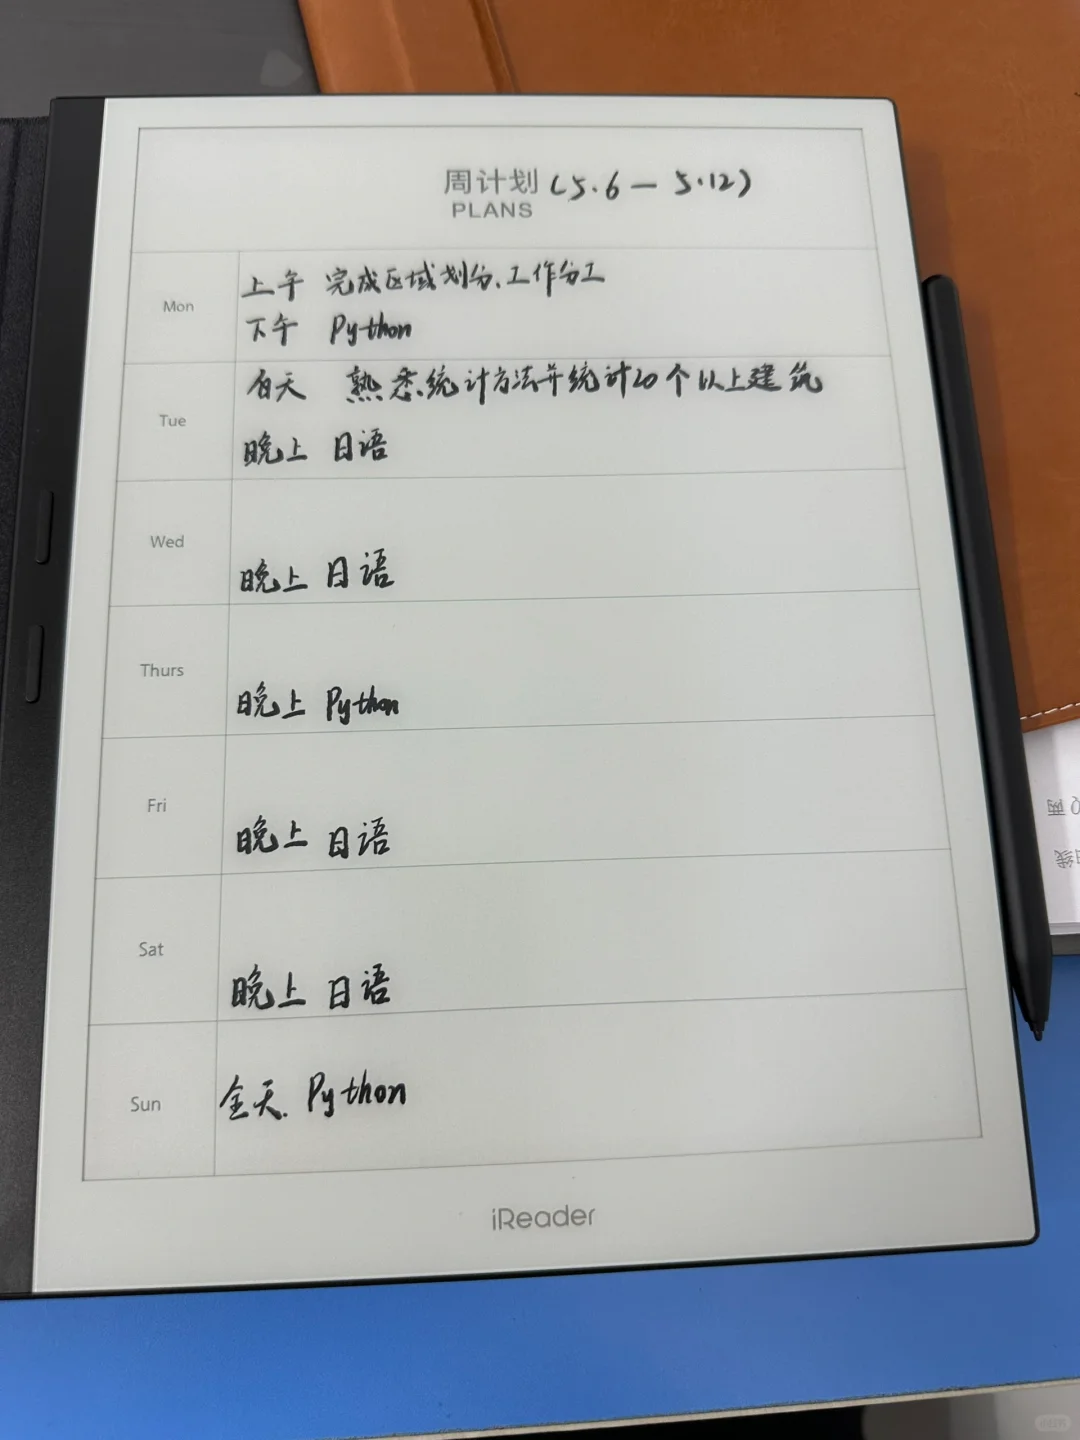 周计划(5.6—5.12)
PLANS
Mon
上午 完成区域划分、工作分工
下午 Python
Tue
白天 熟悉统计方法并统计20个以上建筑
晚上 日语
Wed
晚上 日语
Thurs
晚上 Python
Fri
晚上 日语
Sat
晚上 日语
Sun
全天. Python
iReader